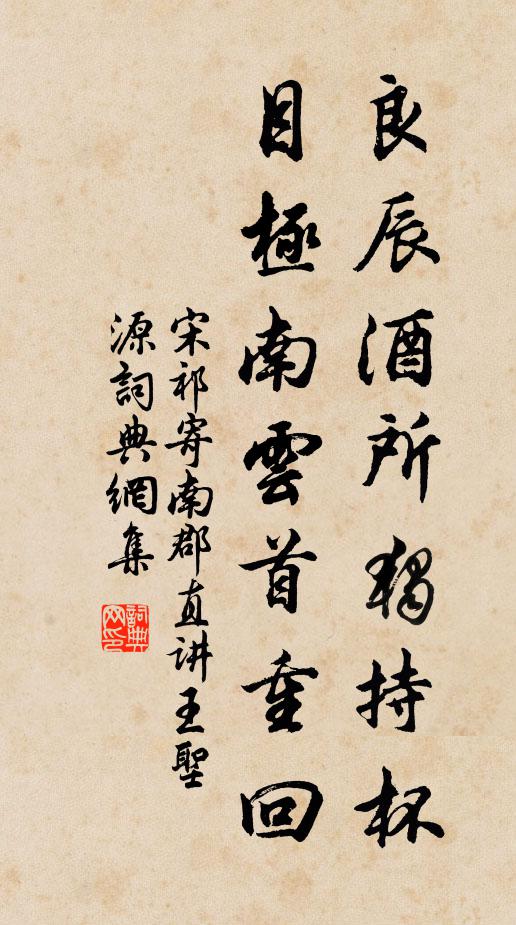 良辰酒所獨持杯
目極南雲首重回
宋祁寄南郡直讲王聖
源詞典網集
詞典网印